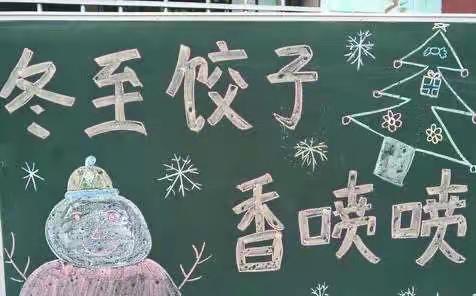 冬至饺子
香喷喷